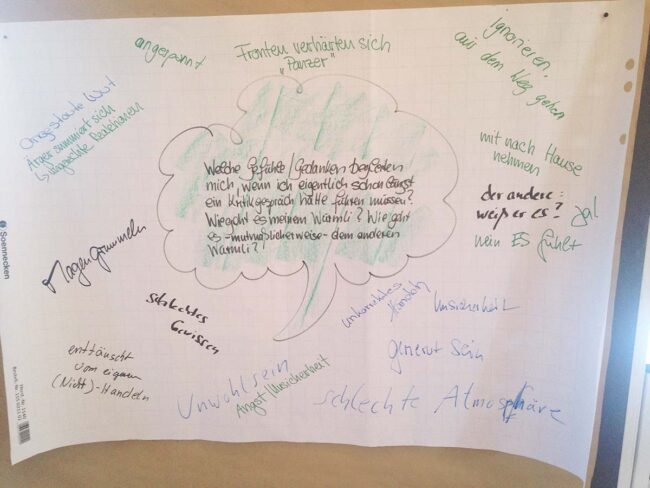 angespannt
Fronten verhärten sich
"Panzer"
Ignorieren,
aus dem Weg gehen
Angestaute Wut
Ärger summiert sich
↳ ungerechte Reaktionen
mit nach Hause
nehmen
Welche Gefühle/Gedanken begleiten
mich, wenn ich eigentlich schon längst
ein Kritikgespräch hätte führen müssen?
Wie geht es meinem Warmli? Wie geht
es -mutmaßlicherweise- dem anderen
Warmli?
der andere:
weiß er es?
ja!
nein ES fühlt
Magengrummeln
schlechtes
Gewissen
unkorrektes
Handeln
Unsicherheit
enttäuscht
vom eigenen
(Nicht)-Handeln
genervt sein
Unwohlsein
Angst/Unsicherheit
schlechte Atmosphäre
Soennecken